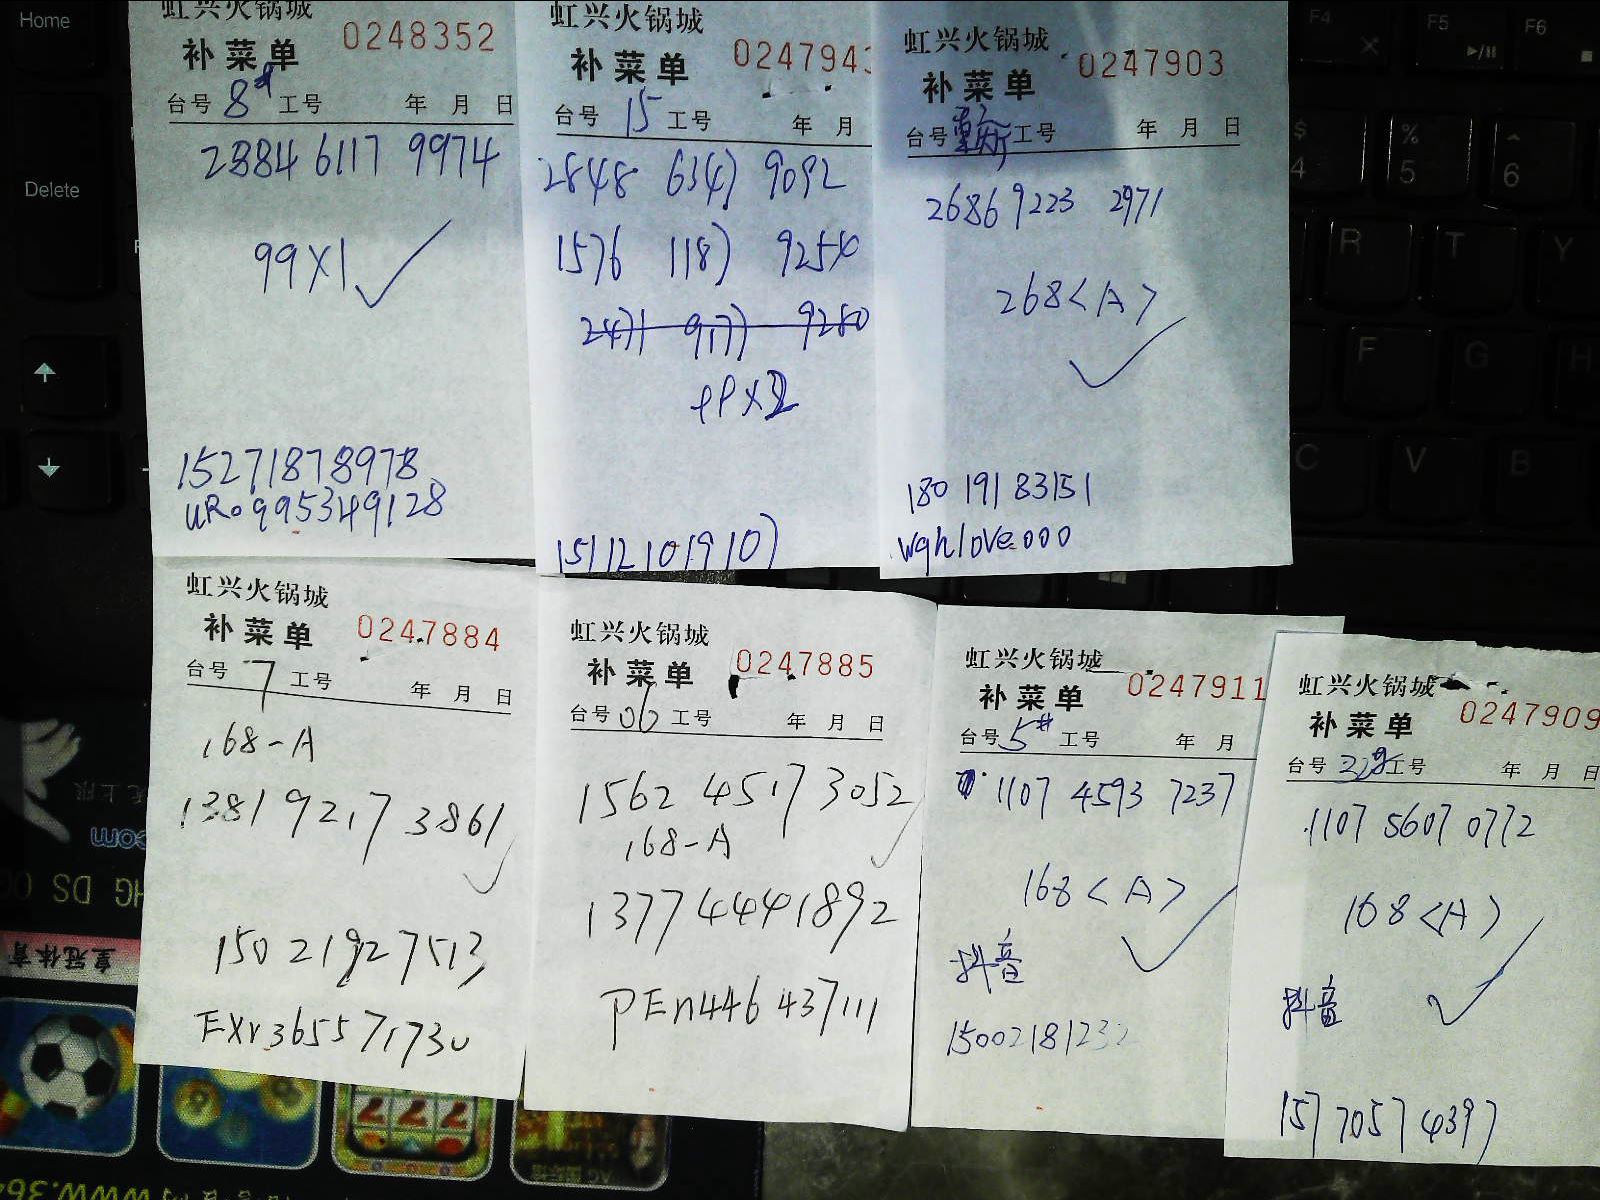 虹兴火锅城
补菜单 0248352
台号 8# 工号 年 月 日
2884 6117 9974
99X1
15271878978
URo995349128
虹兴火锅城
补菜单 024794
台号 15 工号 年 月
2848 6347 9092
1576 1187
2471 9177 9280
151121019107
虹兴火锅城
补菜单 0247903
台号 工号 年 月 日
2686 9223 2971
268<A>
180 191 83151
wghlove000
虹兴火锅城
补菜单 0247884
台号 7 工号 年 月 日
168-A
1381 9217 3861
150 2192 7513
EXr365571730
虹兴火锅城
补菜单 0247885
台号 06 工号 年 月 日
1562 4517 3052
168-A
13774441892
PEn446437111
虹兴火锅城
补菜单 0247911
台号 5# 工号 年 月
1107 4593 7237
168<A>
抖音
15002181232
虹兴火锅城
补菜单 0247909
台号 工号 年 月 日
1107 5607 0772
168<A>
抖音
157 7057 4397
Home
Delete
F4
F5
F6
$
4
%
5
6
R
T
Y
F
G
H
C
V
B
皇冠体育
777